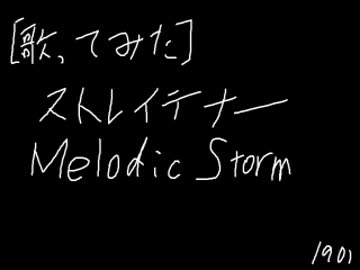 [歌ってみた]
ストレイテナー
Melodic Storm
1901